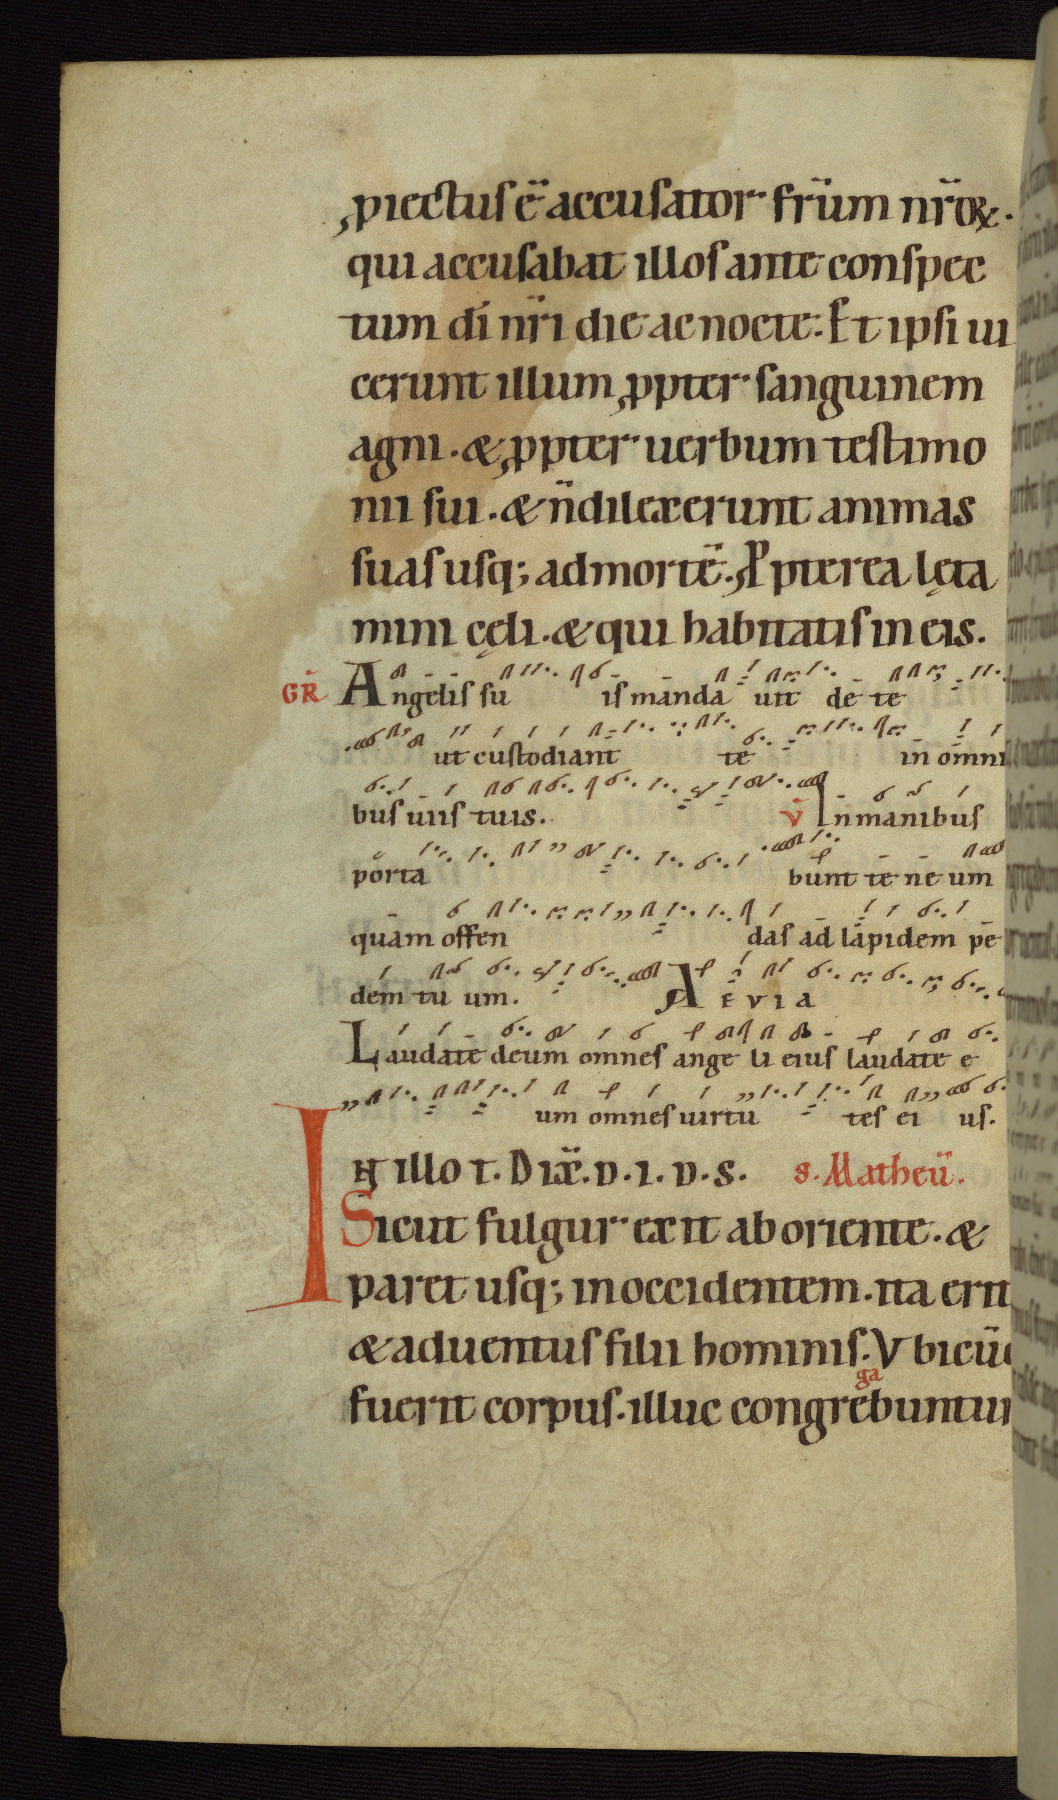 ꝓiectus ē accusator fr̄um nr̄oꝝ.
qui accusabat illos ante conspec
tum dī nr̄i die ac nocte. Et ipsi ui
cerunt illum ꝓpter sanguinem
agni. & ꝓpter uerbum testimo
nii sui. & n̄ dilexerunt animas
suas usq; ad mortē. Ꝓpterea lęta
mini cęli. & qui habitatis in eis.
GR̄ Angelis su is manda uit de te
ut custodiant te in omni
bus uiis tuis. v̄ In manibus
porta bunt te ne um
quam offen das ad lapidem pe
dem tu um. AEVIA
Laudate deum omnes ange li eius laudate e
um omnes uirtu tes ei us.
IN illo t. Dix̄. D. I. D. S. S. Matheū.
Sicut fulgur exit ab oriente. &
paret usq; in occidentem. ita erit
& aduentus filii hominis. Vbicūq
fuerit corpus. illuc congregabuntur